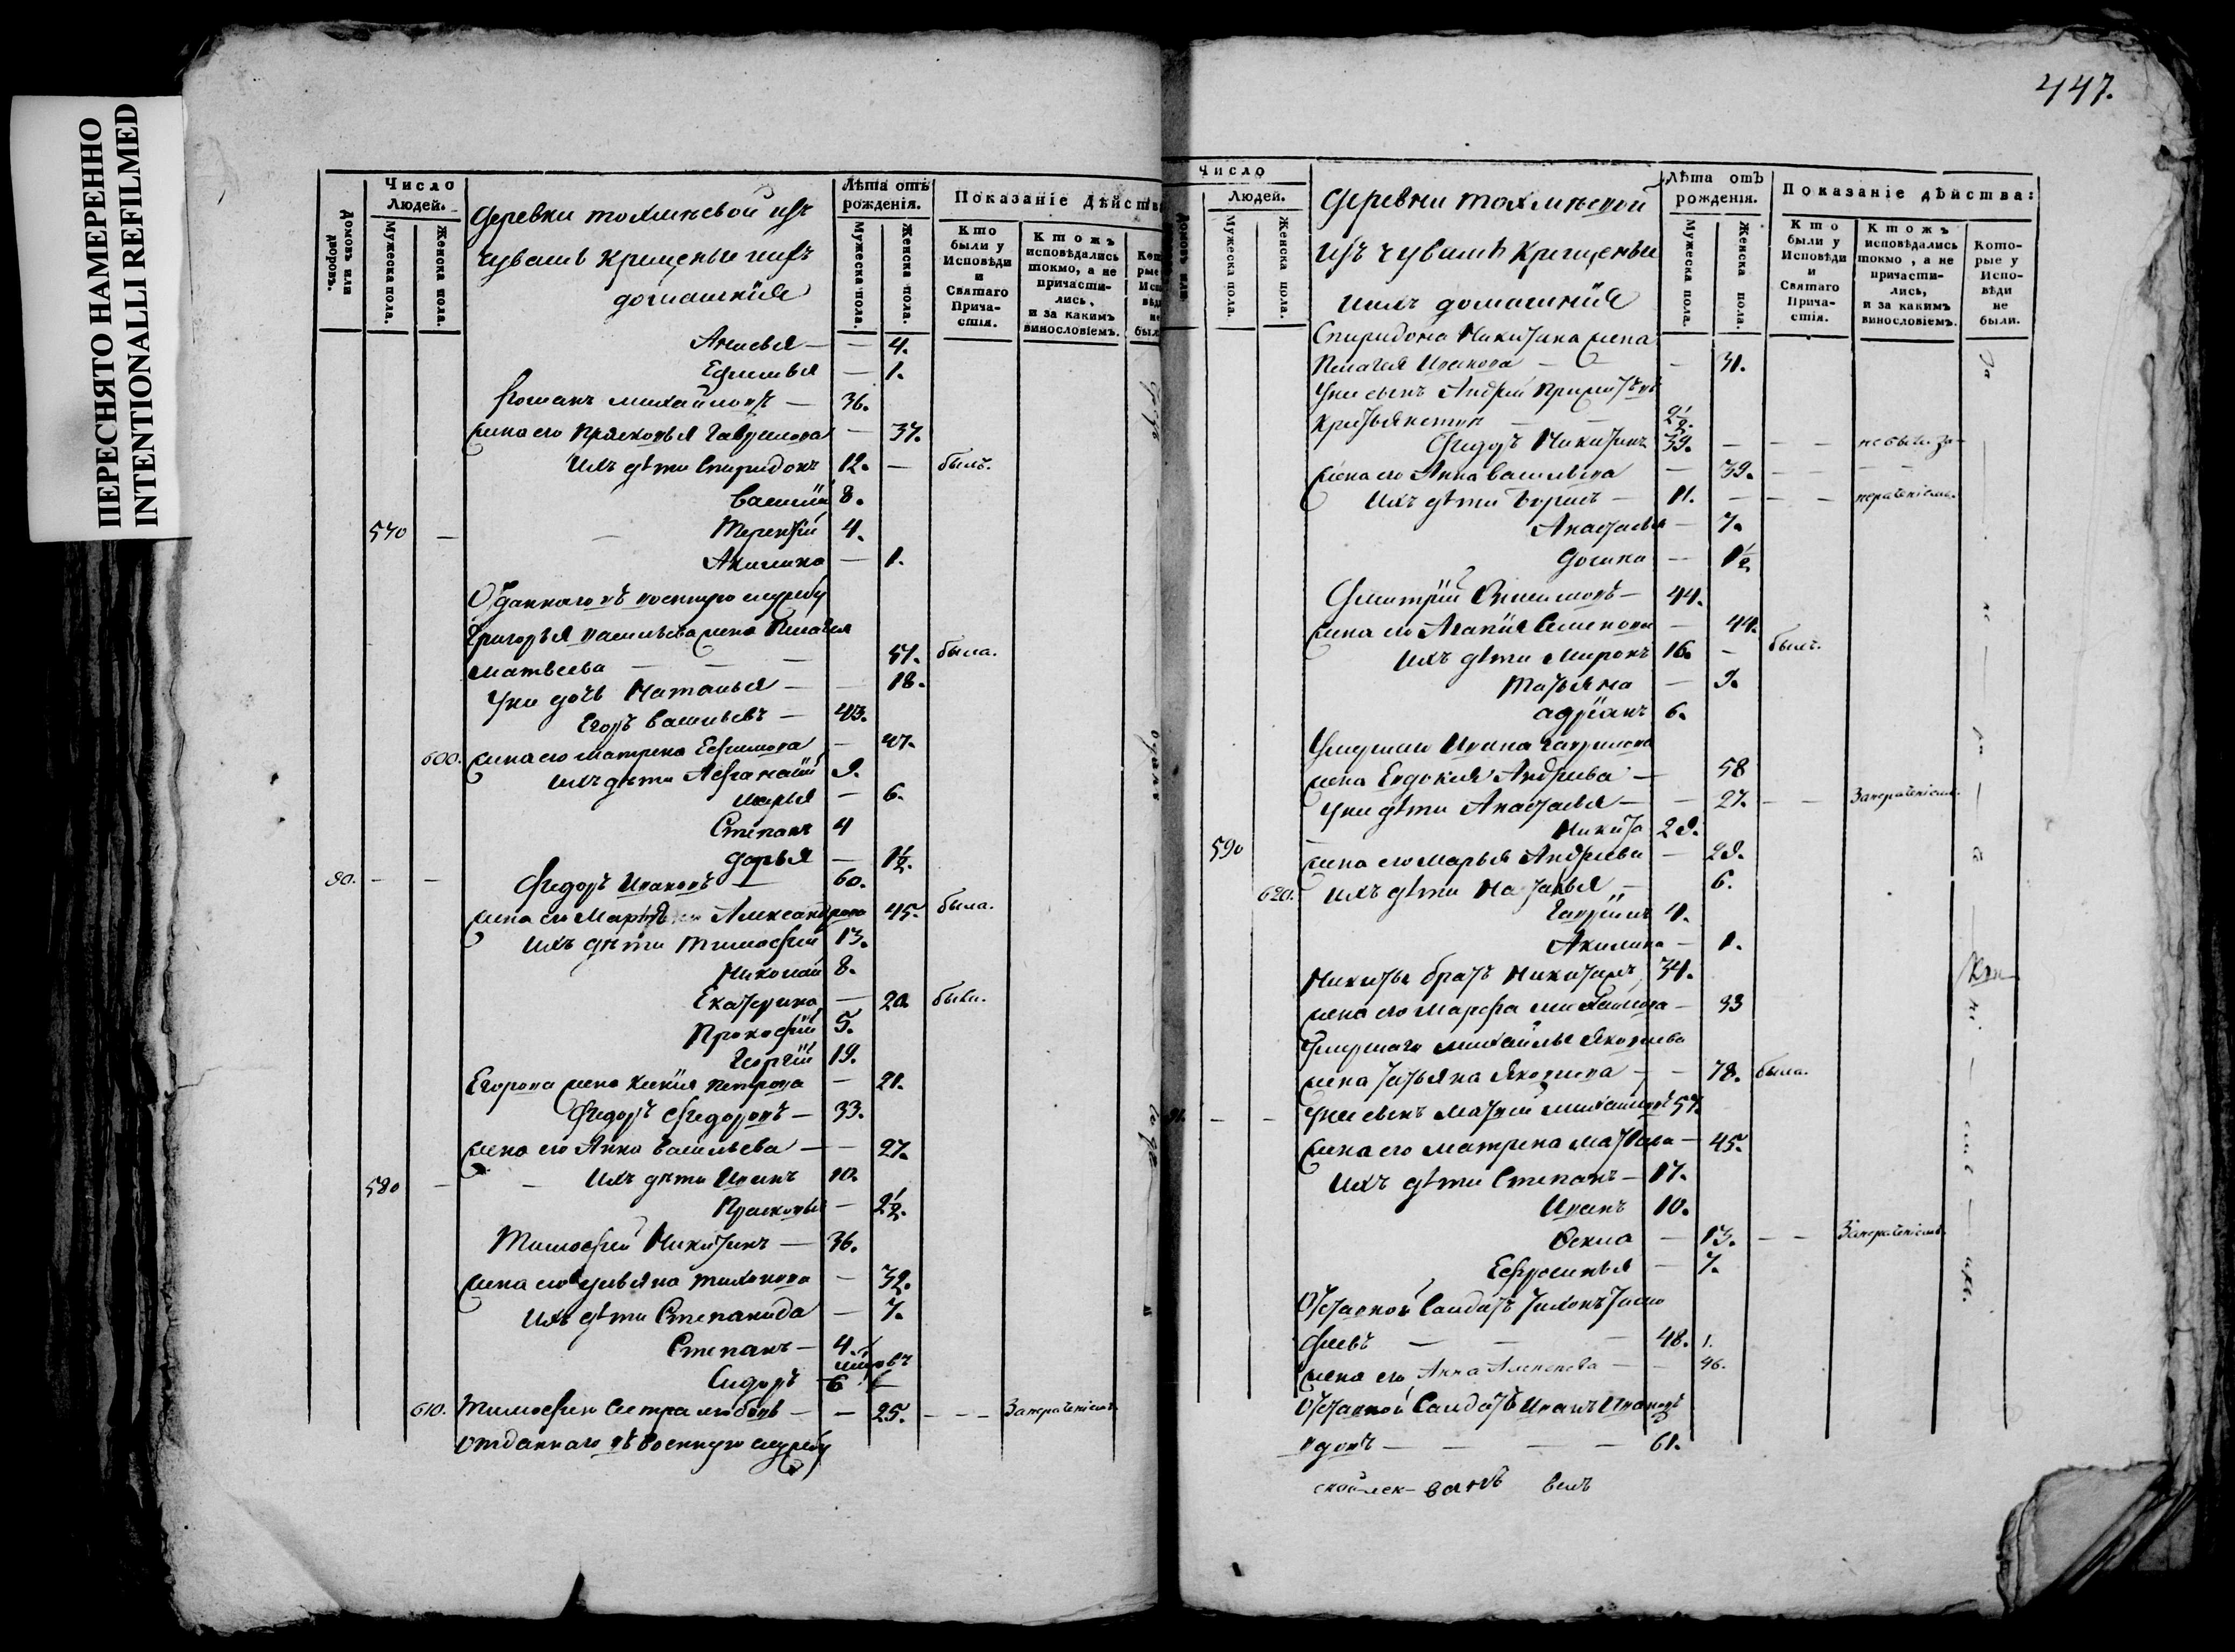 ПЕРЕСНЯТО НАМЕРЕННО
INTENTIONALLI REFILMED
Домовъ или дворовъ.
Число Людей.
Мужеска пола.
Женска пола.
деревни
чувашъ крещеные ихъ
домашнiя
Лѣта отъ рожденiя.
Мужеска пола.
Женска пола.
Показанiе Дѣйства
Кто были у Исповѣди и Святаго Причастiя.
Ктожъ исповѣдались токмо, а не причастились, и за какимъ винословiемъ.
Анисья — — 4.
Ефимья — 1.
Романъ Михайловъ — 36.
жена его Прасковья Гаврилова — 37.
Ихъ дѣти Спиридонъ 12. — былъ.
Василiй 8.
570 — — Терентiй 4.
Акилина — 1.
Отданнаго въ военную службу
Григорья Васильева жена Пелагея
Матвеева — — — 57. была.
У ней дочь Наталья — — 18.
Егоръ Васильевъ — 43.
600. жена его Матрена Ефимова — 47.
Ихъ дѣти Афанасiй 9.
Марья — 6.
Степанъ 4
Дарья — 1½.
90. — — Федоръ Ивановъ — 60.
жена его Марья Александрова 45. была.
Ихъ дѣти Тимофей 13.
Николай 8.
Екатерина — 20 была.
Прокофiй 5.
Георгiй 19.
Егорова жена Ксенiя Петрова — 21.
Федоръ Федоровъ — 33.
жена его Анна Васильева — — 27.
580 — — Ихъ дѣти Иванъ 10.
Прасковья — 2½.
Тимофей Никитинъ — 36.
жена его Ульяна Тихонова — 32.
Ихъ дѣти Степанида — 7.
Степанъ — 4.
Сидоръ 6
610. Тимофея сестра Любовь — — 25. — — — За нерачениемъ.
отданнаго въ военную службу
447.
Домовъ или
Число Людей.
Мужеска пола.
Женска пола.
деревни
изъ чувашъ крещеные
ихъ домашнiя
Лѣта отъ рожденiя.
Мужеска пола.
Женска пола.
Показанiе дѣйства:
Кто были у Исповѣди и Святаго Причастiя.
Ктожъ исповѣдались токмо, а не причастились, и за какимъ винословiемъ.
Которые у Исповѣди не были.
Спиридона Никитина жена
Пелагея Иванова — — — 31.
У ней сынъ Андрей
2½.
Федоръ Никитинъ 39. — — — не были за
жена его Анна Васильева — 39. — — — —
Ихъ дѣти Борисъ — 11. — — — нерачениемъ.
Анастасья — 7.
— 1½
Дмитрiй — 44.
жена его Агапiя Семенова — 44.
Ихъ дѣти Миронъ 16. — былъ.
Татьяна — 9.
Адрiанъ 6.
Умершаго Ивана Гаврилова
жена Евдокия Андреева — 58
У ней дѣти Анастасья — — 27. — — За нерачениемъ.
Никита 29.
590 — жена его Марья Андреева — 29.
620. Ихъ дѣти Наталья — 6.
Гаврiилъ 4.
Акилина — 1.
Никиты братъ Никита 34.
жена его Марфа Михайлова — 33
Умершаго Михайлы Яковлева
жена Татьяна Яковлева — — 78. была.
91. — — У ней сынъ Матвей Михайловъ 57.
жена его Матрена — 45.
Ихъ дѣти Степанъ — 17.
Иванъ 10.
Фекла — 13. — — За нерачениемъ.
Ефросинья — 7.
Отставной Солдатъ Тихонъ Тимо
феевъ — — — 48. 1.
жена его Анна — — 46.
Отставной Солдатъ Иванъ Ивановъ
вдовъ — — — — 61.